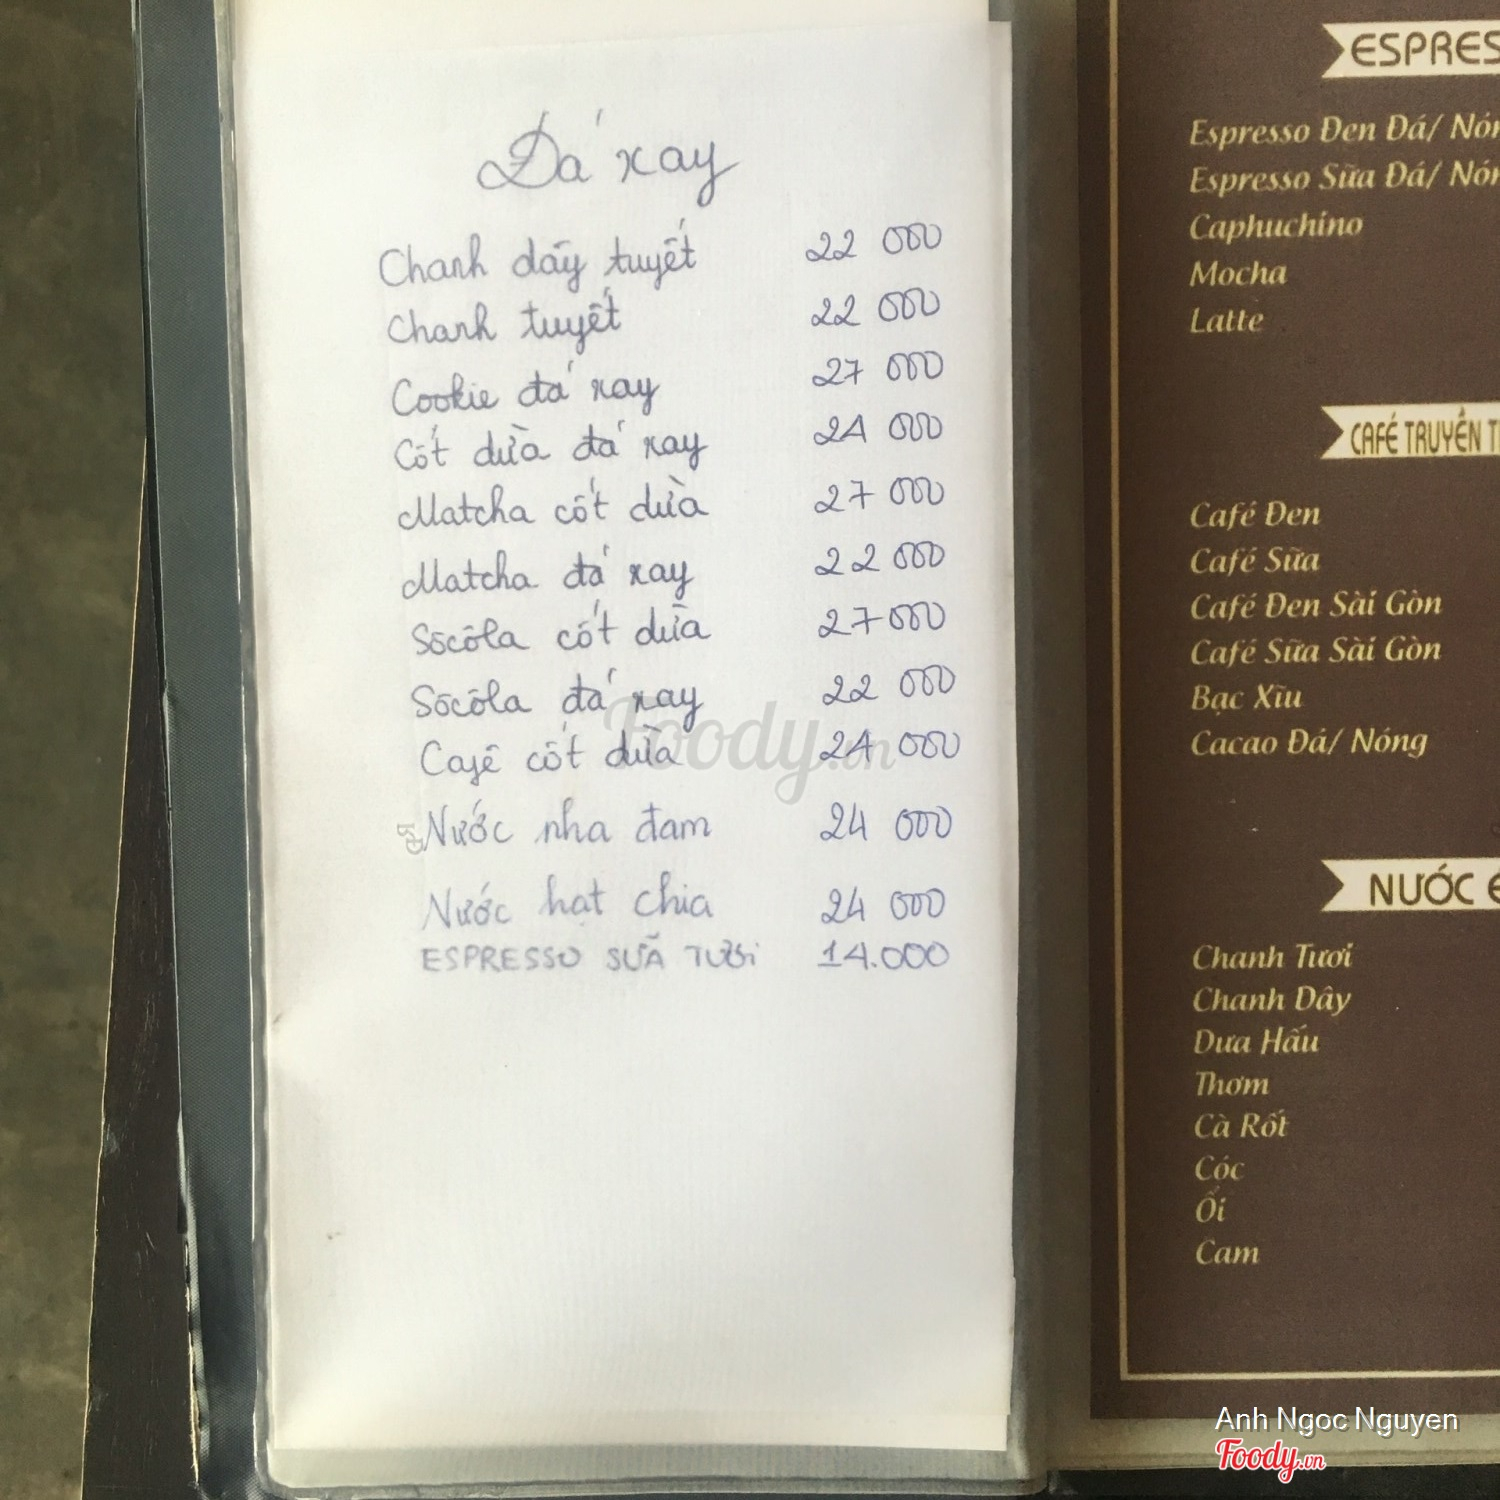 Đá xay
Chanh dây tuyết 22 000
Chanh tuyết 22 000
Cookie đá xay 27 000
Cốt dừa đá xay 24 000
Matcha cốt dừa 27 000
Matcha đá xay 22 000
Sôcôla cốt dừa 27 000
Sôcôla đá xay 22 000
Café cốt dừa 24 000
Nước nha đam 24 000
Nước hạt chia 24 000
ESPRESSO SỮA TƯƠI 14.000
Foody.vn
ESPRES
Espresso Đen Đá/ Nón
Espresso Sữa Đá/ Nón
Caphuchino
Mocha
Latte
CAFÉ TRUYỀN T
Café Đen
Café Sữa
Café Đen Sài Gòn
Café Sữa Sài Gòn
Bạc Xĩu
Cacao Đá/ Nóng
NƯỚC É
Chanh Tươi
Chanh Dây
Dưa Hấu
Thơm
Cà Rốt
Cóc
Ổi
Cam
Anh Ngoc Nguyen
Foody.vn